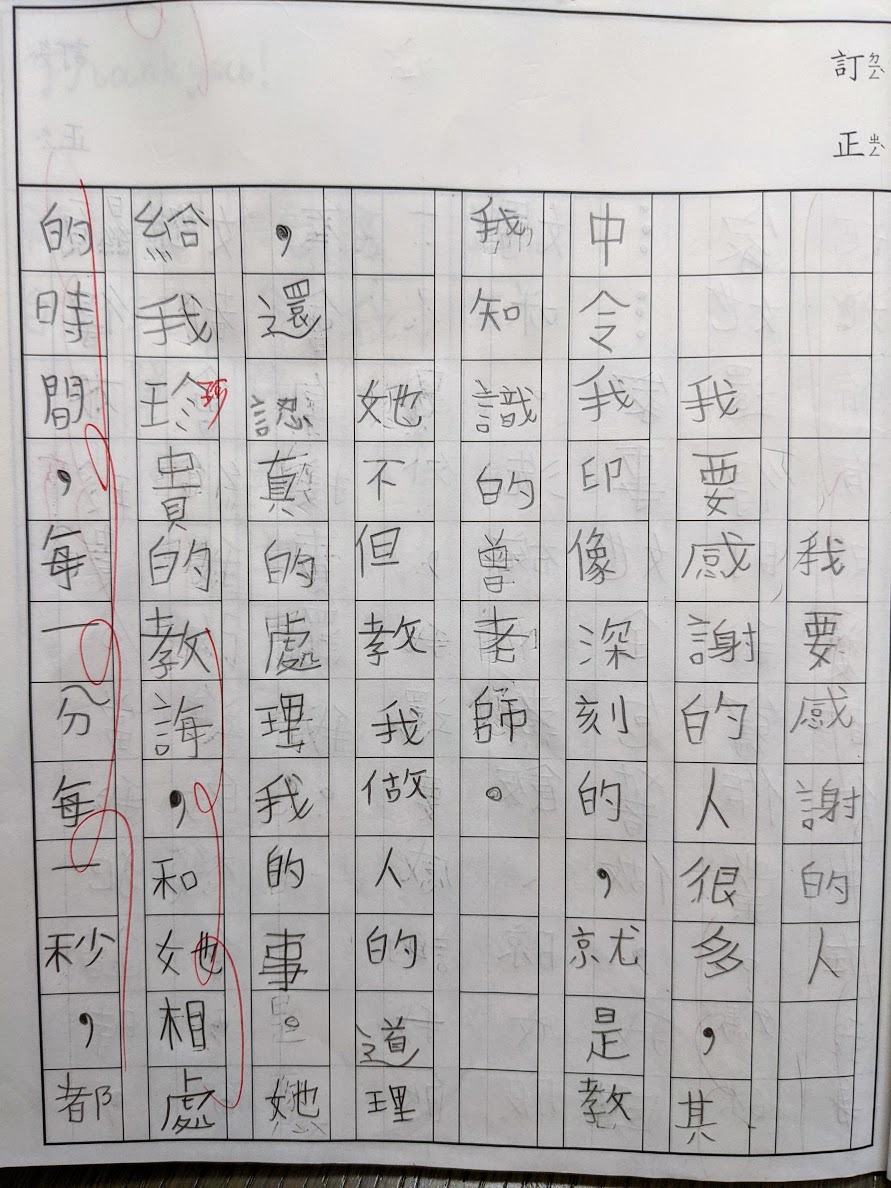 訂ㄉㄧㄥ
正ㄓㄥ
我要感謝的人
我要感謝的人很多，其
中令我印像深刻的，就是教
我知識的曾老師。
她不但教我做人的道理
，還認真的處理我的事。她
給我珍珍貴的教誨，和她相處
的時間，每一分每一秒，都